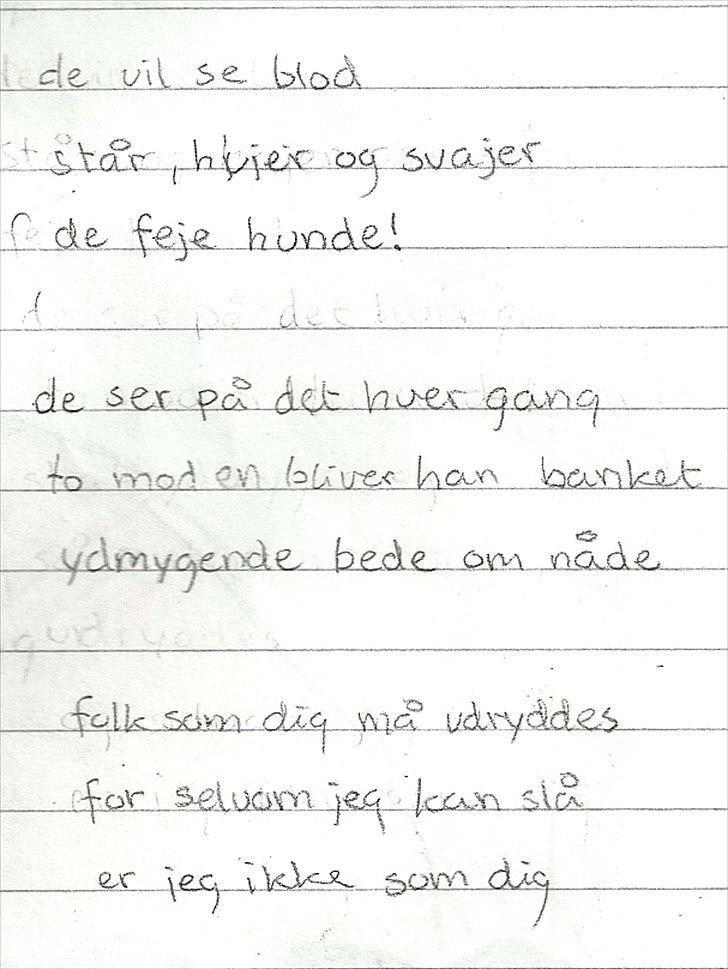 de vil se blod
står, hujer og svajer
de feje hunde!
de ser på det hver gang
to mod en bliver han banket
ydmygende bede om nåde
folk som dig må udryddes
for selvom jeg kan slå
er jeg ikke som dig